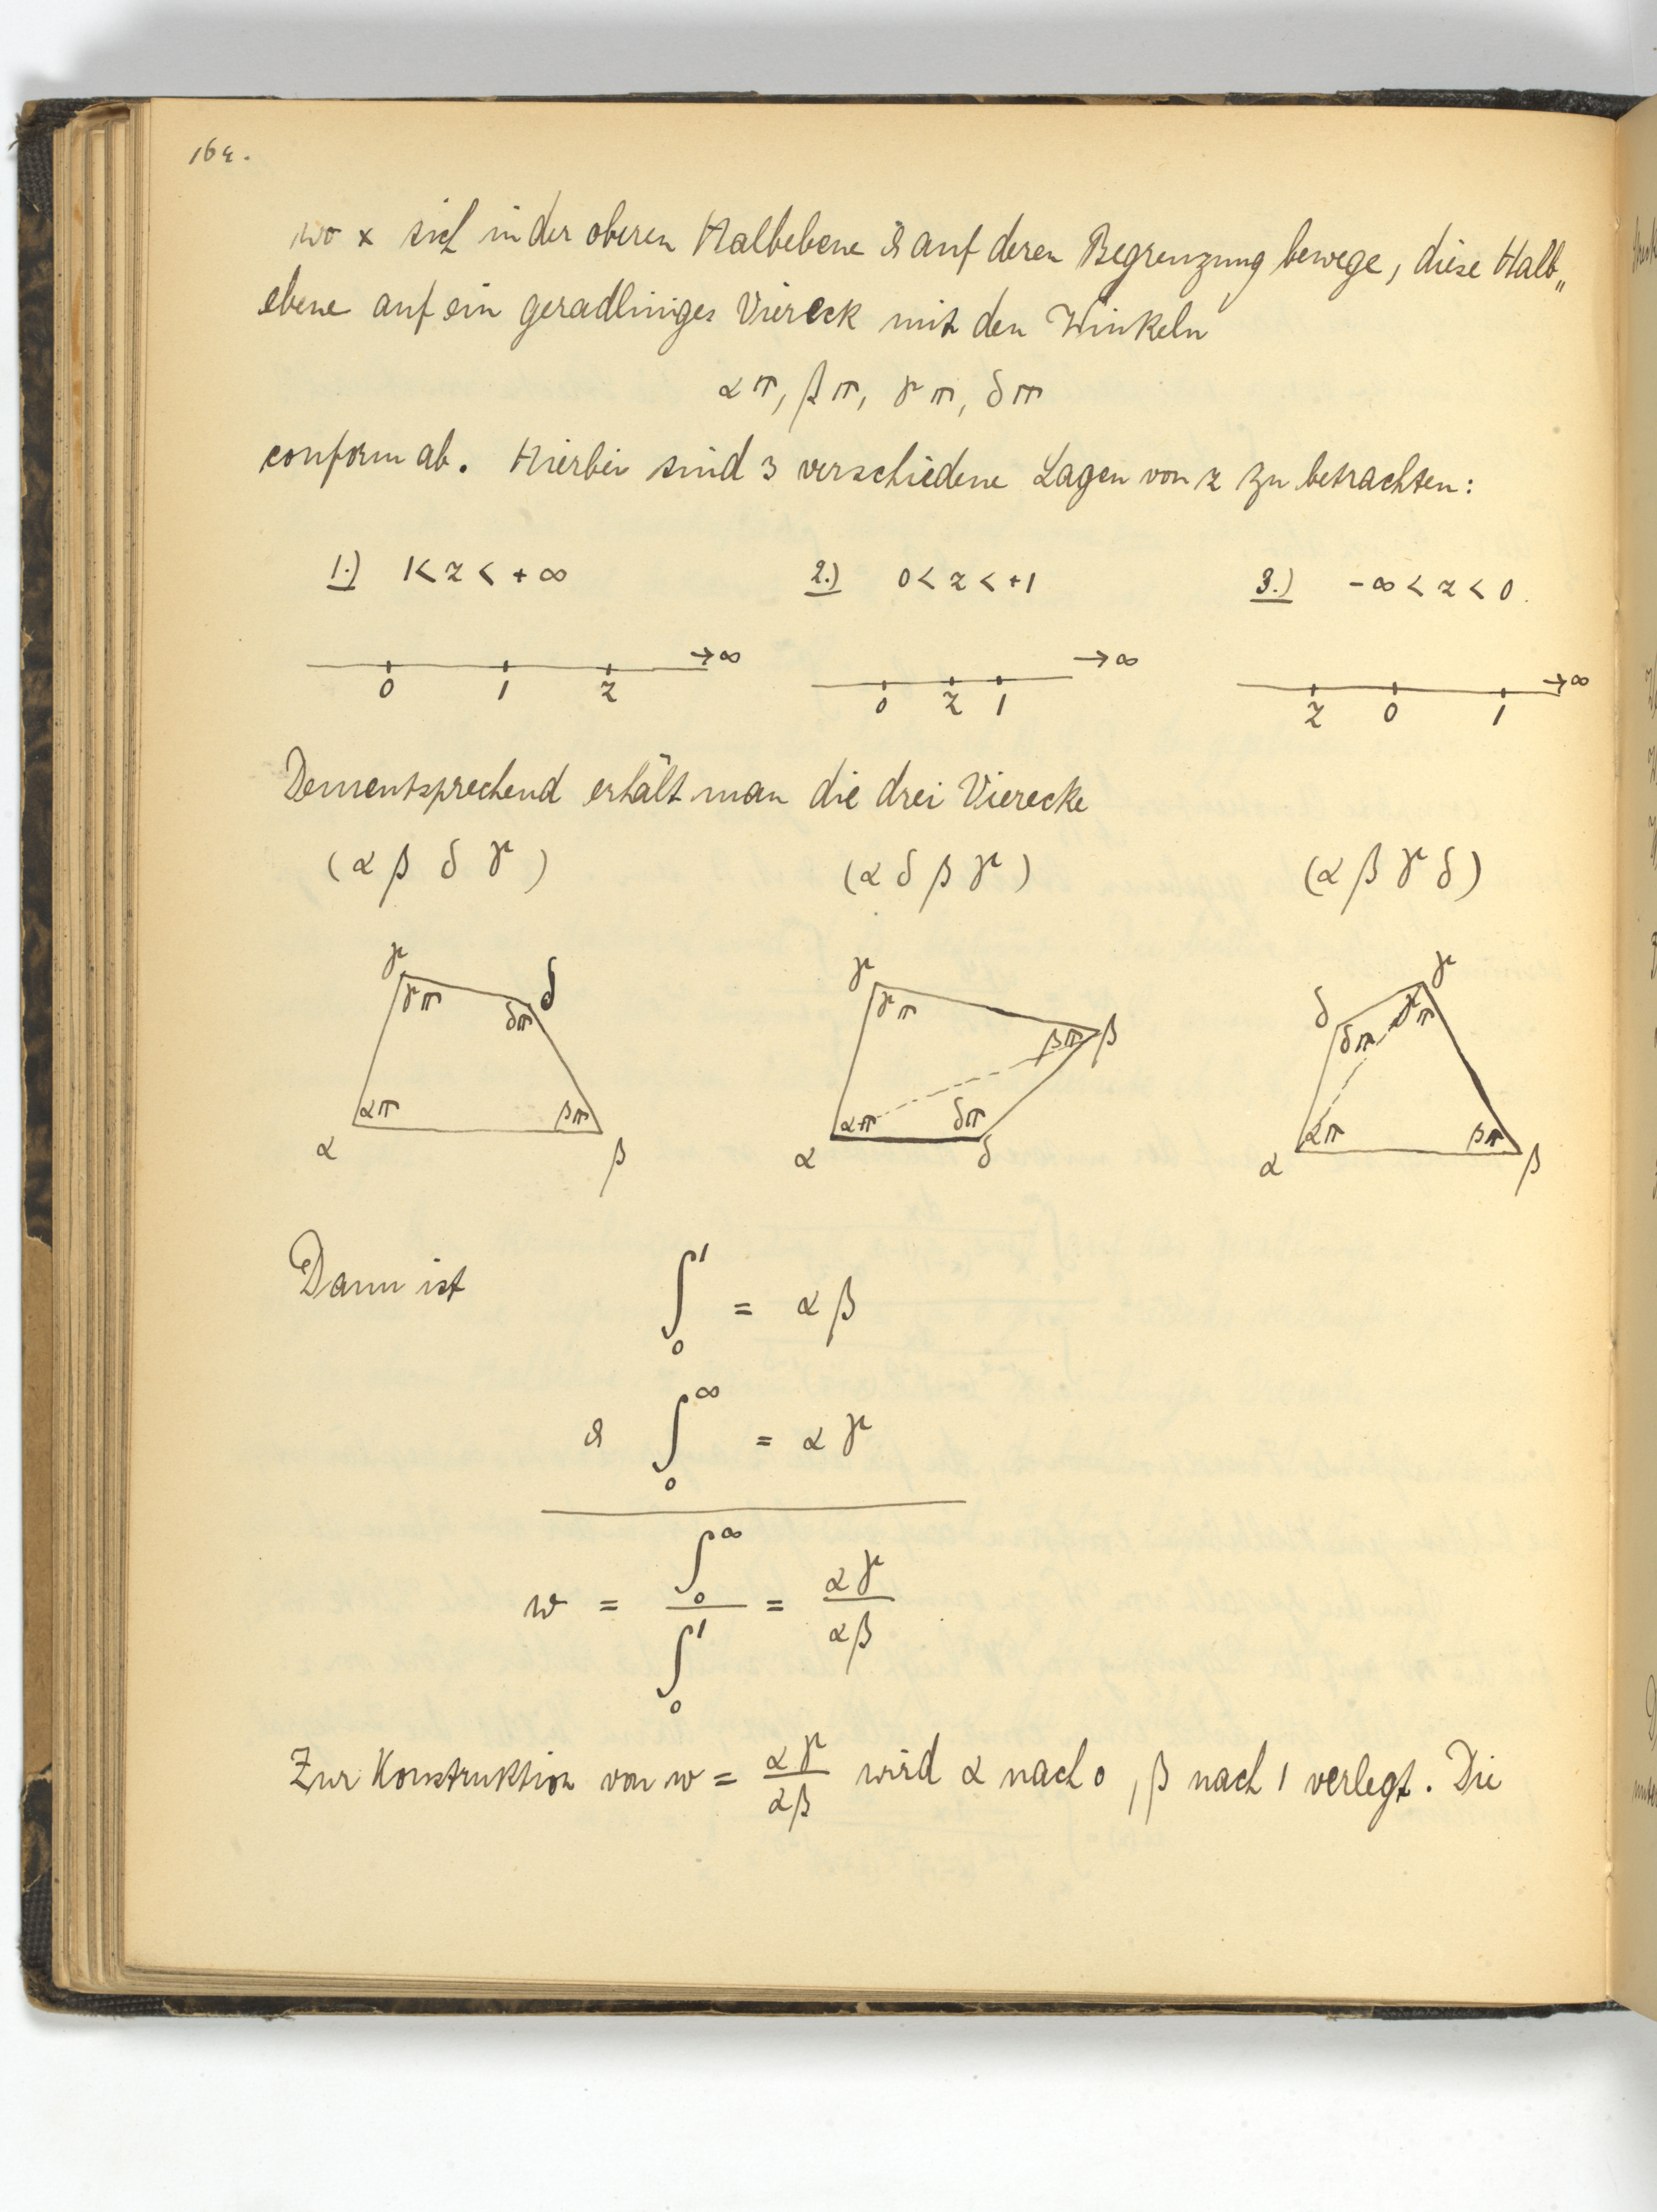 164.
wo x sich in der oberen Halbebene & auf deren Begrenzung bewege, diese Halb„
ebene auf ein geradliniges Viereck mit den Winkeln
απ, βπ, γπ, δπ
conform ab. Hierbei sind 3 verschiedene Lagen von z zu betrachten:
1.) 1 < z < +∞ 2.) 0 < z < +1 3.) -∞ < z < 0.
→∞ →∞ →∞
0 1 z 0 z 1 z 0 1
Dementsprechend erhält man die drei Vierecke
(α β δ γ) (α δ β γ) (α β γ δ)
γ δ γ β δ γ
γπ δπ γπ βπ δπ γπ
απ βπ απ δπ απ βπ
α β α δ α β
Dann ist ∫₀¹ = αβ
& ∫₀^∞ = αγ
w = ∫₀^∞ / ∫₀¹ = αγ / αβ
Zur Konstruktion von w = αγ / αβ wird α nach 0, β nach 1 verlegt. Die